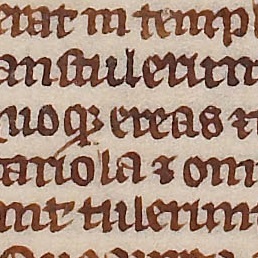 erat in templ
anstulerunt
uoqꝫ ereas ⁊ t
tariola ⁊ omn
ant tulerunt